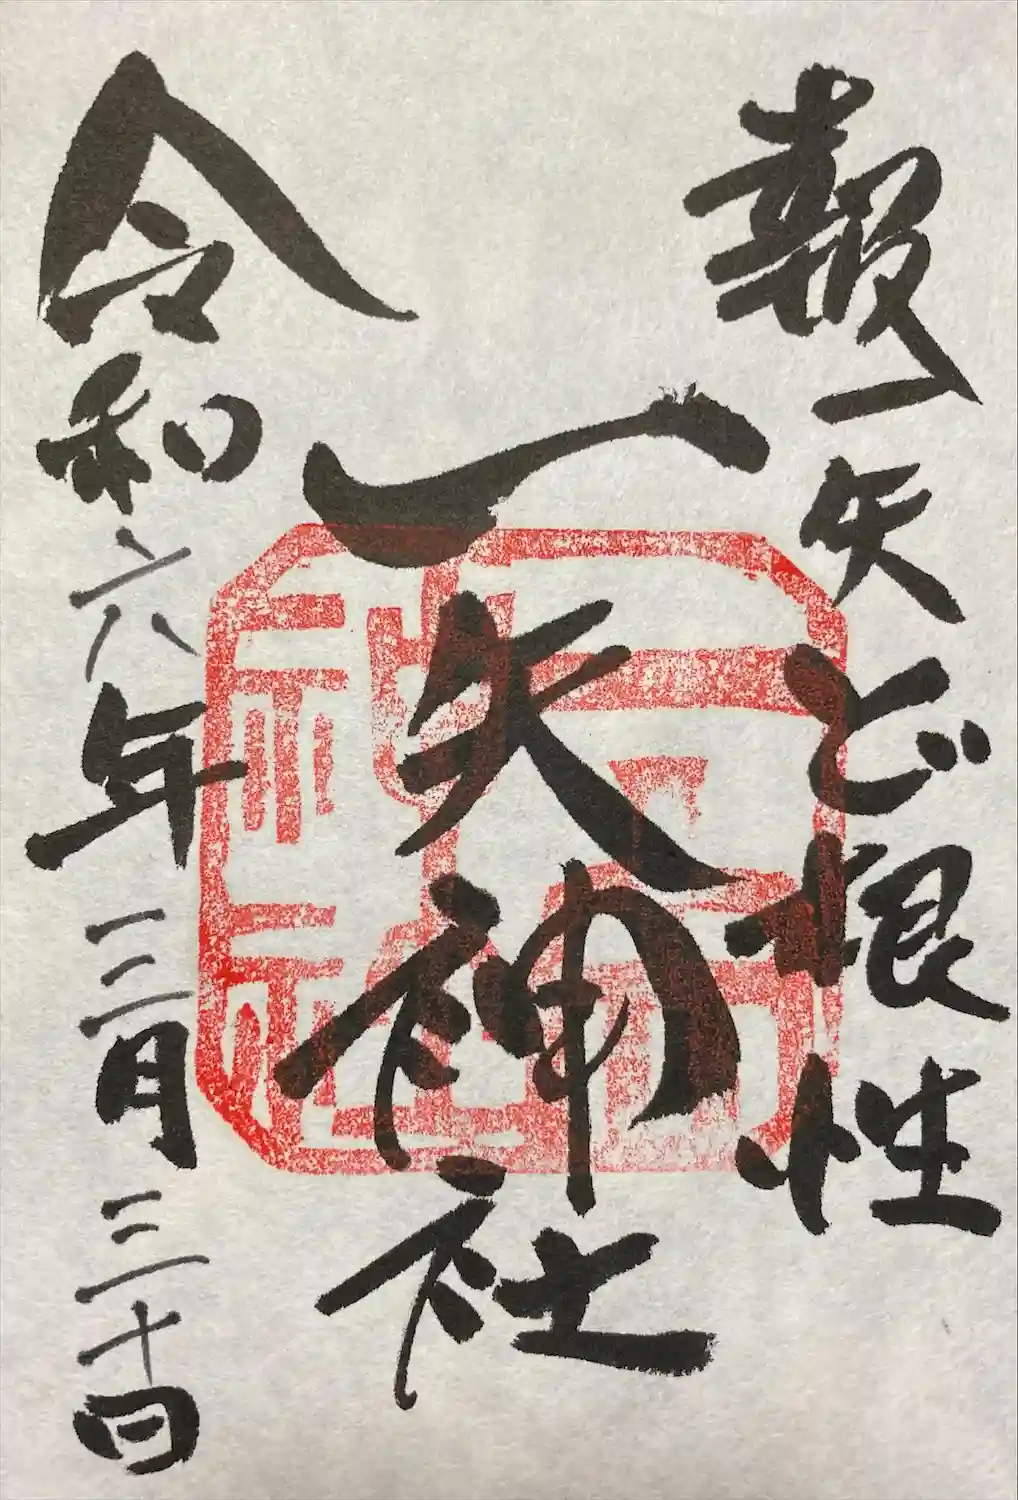 報一矢ど根性
一矢神社
令和六年一二月三十日